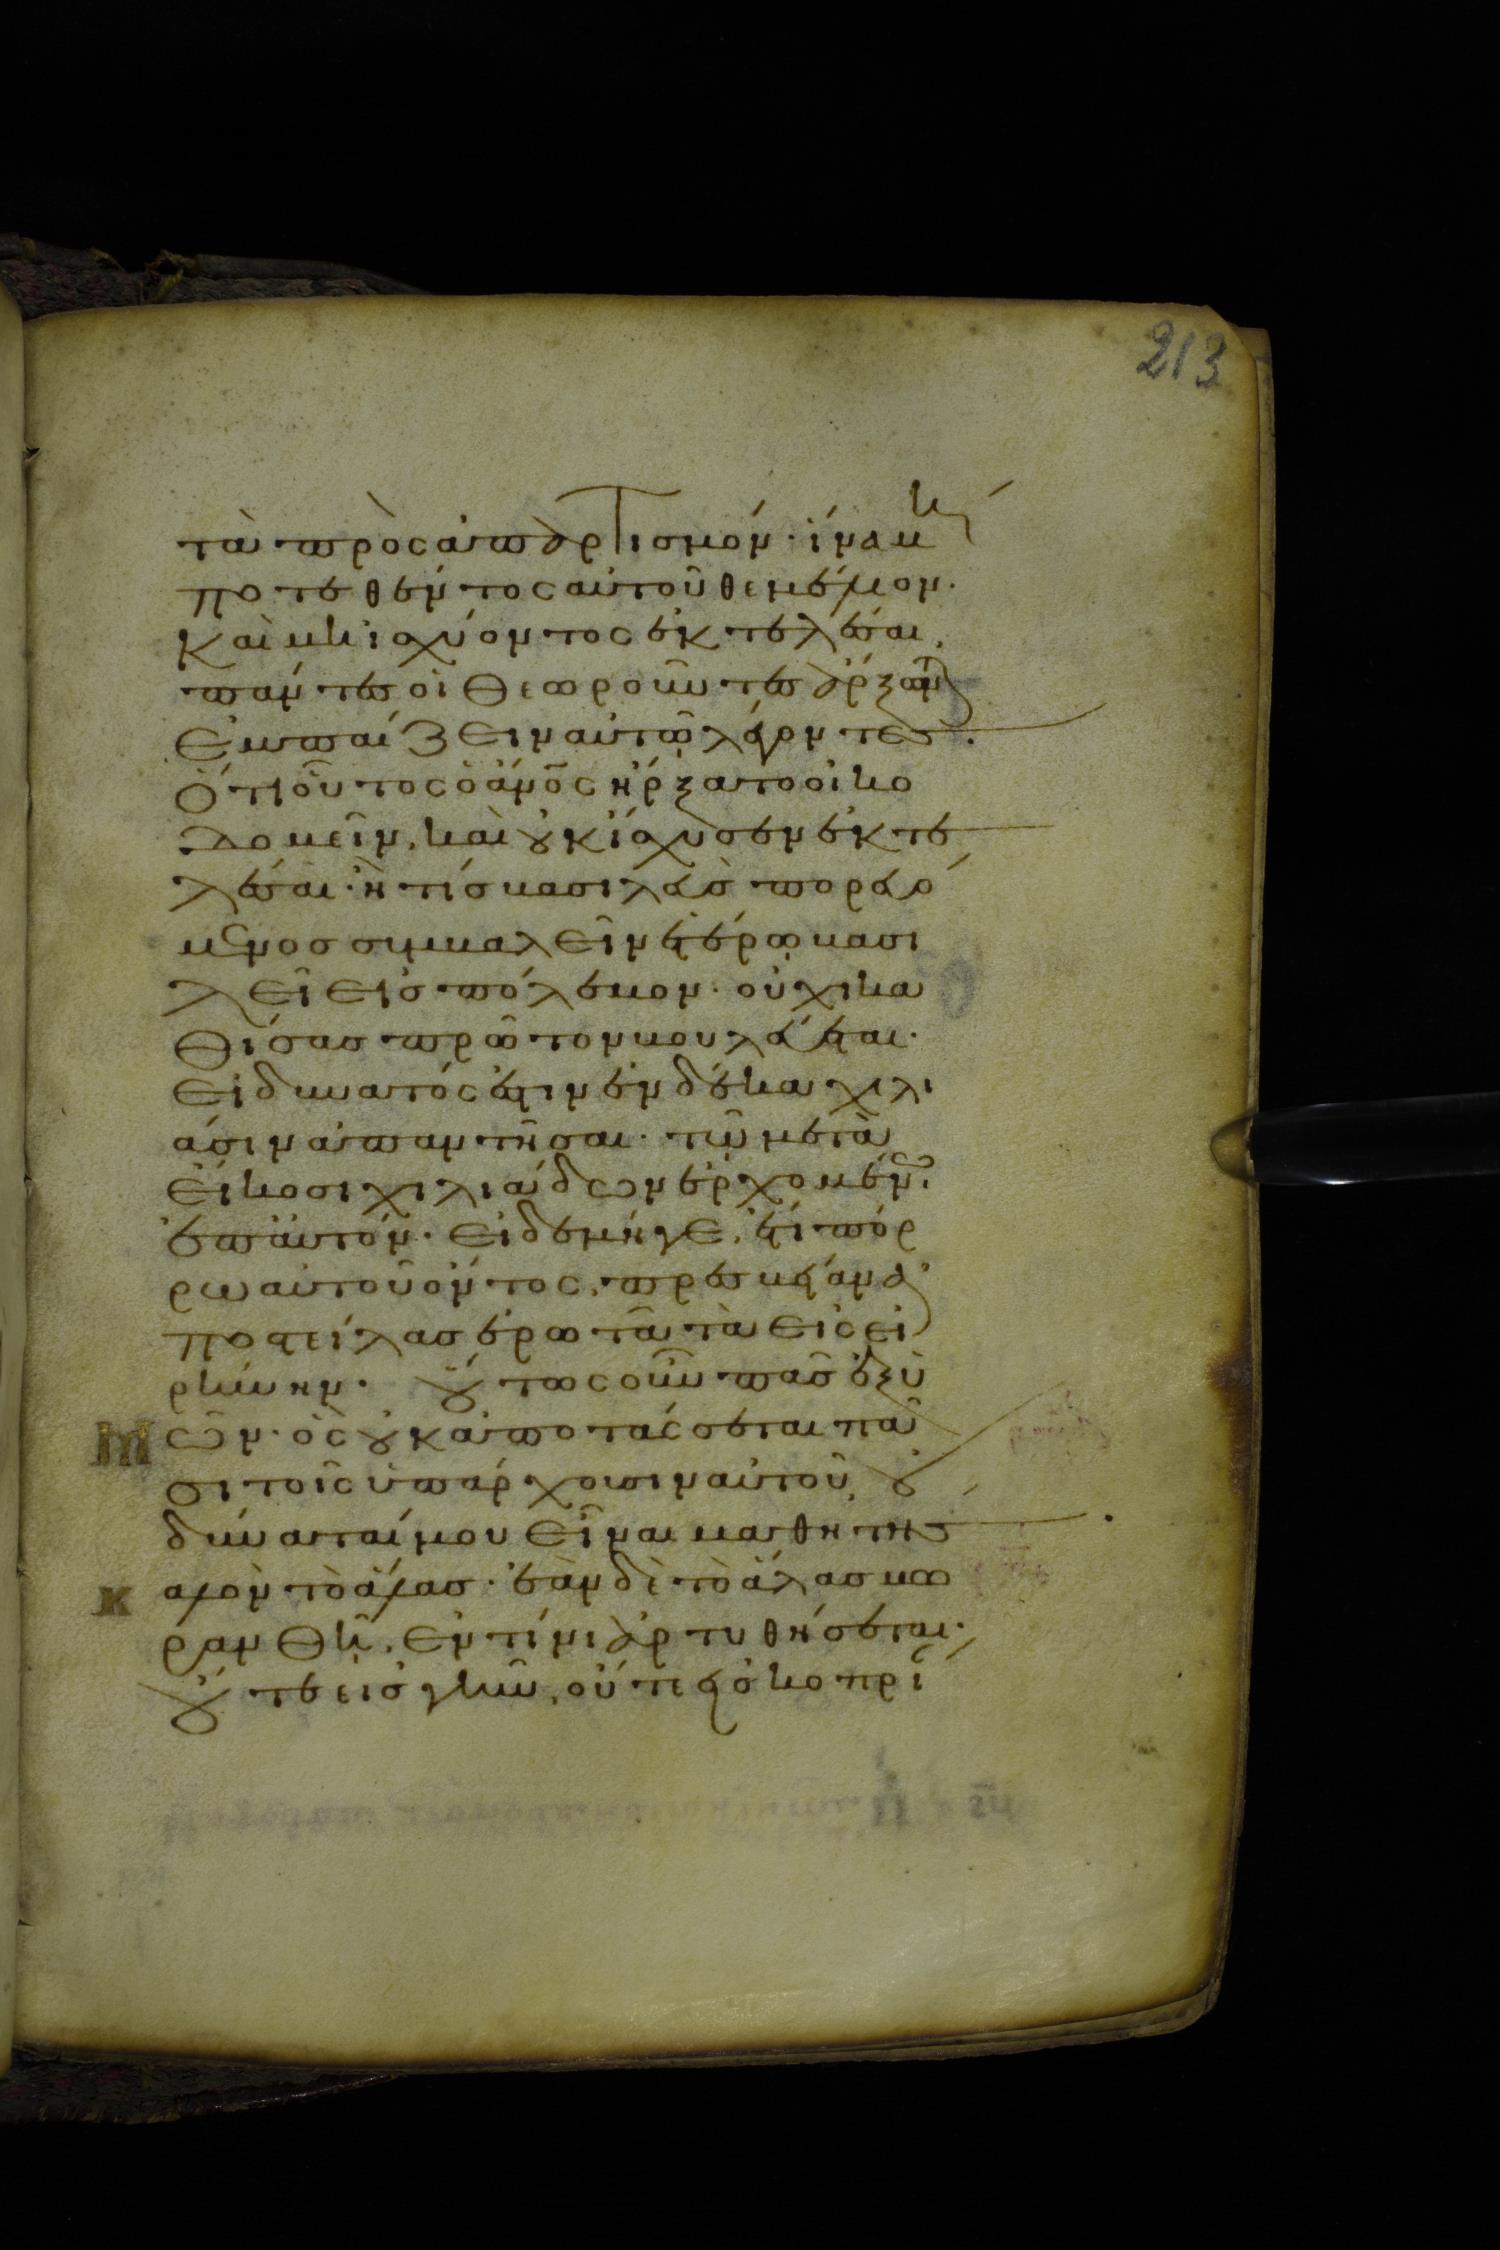 213
τὰ πρὸς ἀπαρτισμόν· ἵνα μή
ποτε θέντος αὐτοῦ θεμέλιον·
καὶ μὴ ἰσχύοντος ἐκτελέσαι,
πάντες οἱ θεωροῦντες ἄρξων(ται)
ἐμπαίζειν αὐτῷ λέγοντες·
ὅτι οὗτος ὁ ἄνος ἤρξατο οἰκο
δομεῖν, καὶ οὐκ ἴσχυσεν ἐκτε
λέσαι· ἢ τίς βασιλεὺς πορευό
μενος συμβαλεῖν ἑτέρῳ βασι
λεῖ εἰς πόλεμον· οὐχὶ κα
θίσας πρῶτον βουλεύεται·
εἰ δυνατός ἐστιν ἐν δέκα χιλι
άσιν ἀπαντῆσαι· τῷ μετὰ
εἴκοσι χιλιάδων ἐρχομένῳ
ἐπ' αὐτόν· εἰ δὲ μήγε, ἔτι πόρ
ρω αὐτοῦ ὄντος, πρεσβείαν ἀ
ποστείλας ἐρωτᾷ τὰ εἰς εἰ
ρήνην· οὕτως οὖν πᾶς ἐξ ὑ
μῶν· ὃς οὐκ ἀποτάσσεται πᾶ
σι τοῖς ὑπάρχουσιν αὐτοῦ, οὐ
δύναταί μου εἶναι μαθητής
καλὸν τὸ ἅλας· ἐὰν δὲ τὸ ἅλας μω
ρανθῇ, ἐν τίνι ἀρτυθήσεται·
οὔτε εἰς γῆν, οὔτε εἰς κοπρί